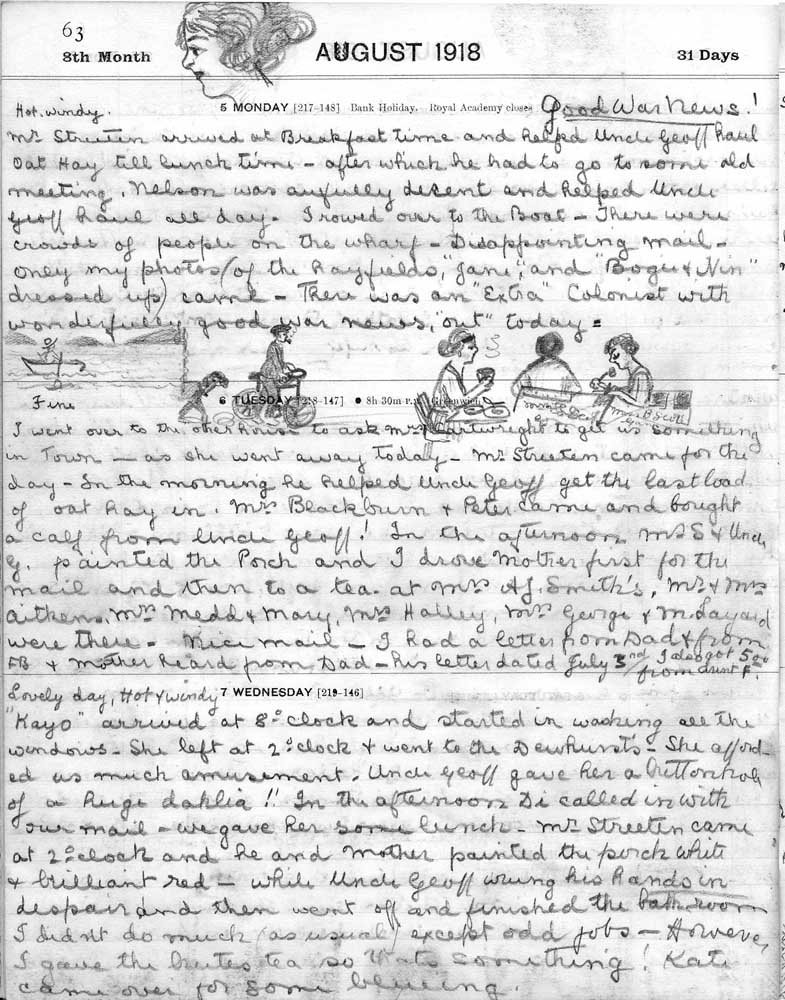 63
8th Month AUGUST 1918 31 Days
Hot. windy. 5 MONDAY [217-148] Bank Holiday. Royal Academy closes Good War News!
Mr. Streeten arrived at Breakfast time and helped Uncle Geoff haul
Oat Hay till lunch time - after which he had to go to some old
meeting. Nelson was awfully decent and helped Uncle
Geoff haul all day. I rowed over to the Boat - There were
crowds of people on the wharf - Disappointing mail -
only my photos (of the Rayfields, "Jane", and "Bogie & Nin"
dressed up) came - There was an "Extra" Colonist with
wonderfully good war news, "out" today =
Fine 6 TUESDAY [218-147] ● 8h 30m P.M. Greenwich
I went over to the other house to ask Mrs Cartwright to get us something
in Town - as she went away today - Mr Streeten came for the
day - In the morning he helped Uncle Geoff get the last load
of oat hay in. Mrs Blackburn & Peter came and bought
a calf from Uncle Geoff! In the afternoon Mr S & Uncle
G. painted the Porch and I drove Mother first for the
mail and then to a tea. at Mrs AJ. Smith's, Mr & Mrs
Aitkens, Mrs Medd & Mary, Mrs Halley, Mrs George & M. Layard
were there - Nice mail - I had a letter from Dad & from
FB & Mother heard from Dad - his letter dated July 3rd I also got 5.00
from Aunt F.
Lovely day, Hot & windy 7 WEDNESDAY [219-146]
"Kayo" arrived at 8 o'clock and started in washing all the
windows - She left at 2 o'clock & went to the Dewhursts - She afford-
ed us much amusement. Uncle Geoff gave her a buttonhole
of a huge dahlia!! In the afternoon Di called in with
our mail - we gave her some lunch - Mr Streeten came
at 2 o'clock and he and Mother painted the porch white
& brilliant red - while Uncle Geoff wrung his hands in
despair and then went off and finished the bathroom
I didn't do much (as usual) except odd jobs - However,
I gave the brutes tea so thats something! Kate
came over for some blueing.